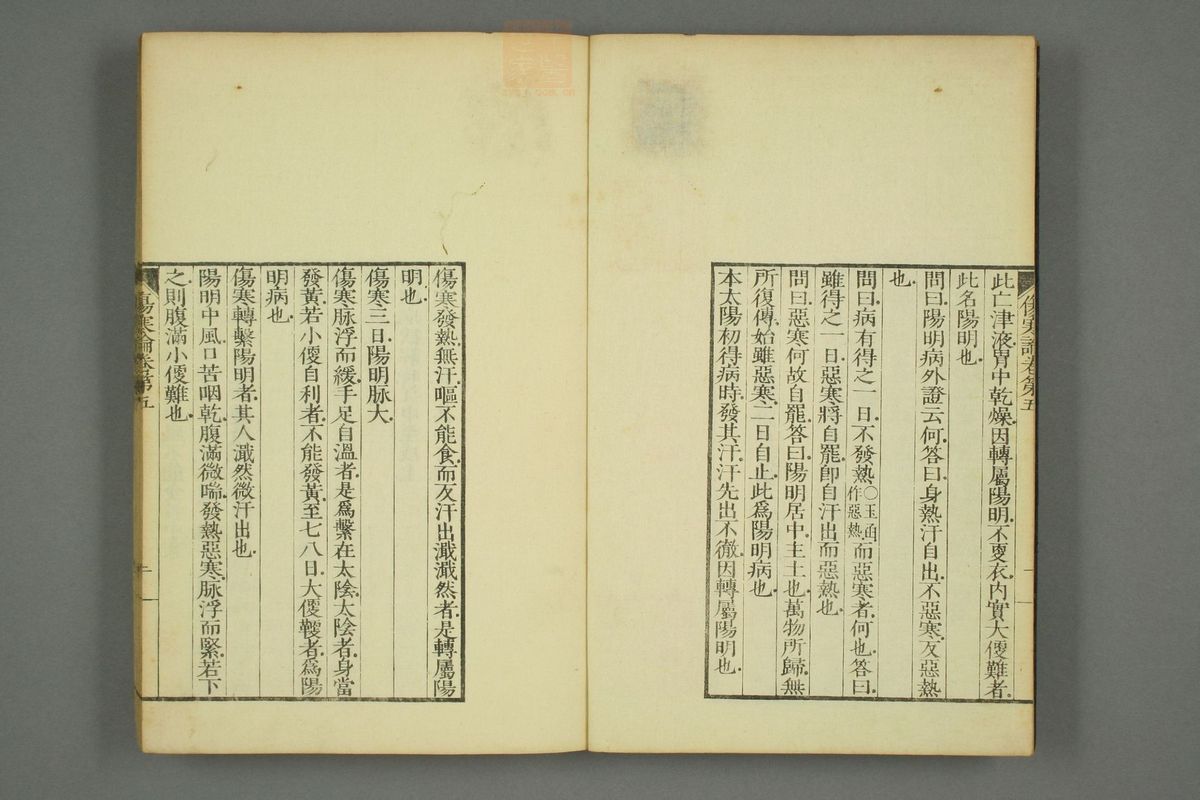 此亡津液胃中乾燥因轉屬陽明不更衣內實大便難者
此名陽明也
問曰陽明病外證云何答曰身熱汗自出不惡寒反惡熱
也
問曰病有得之一日不發熱〇玉函作惡熱而惡寒者何也答曰
雖得之一日惡寒將自罷卽自汗出而惡熱也
問曰惡寒何故自罷答曰陽明居中主土也萬物所歸無
所復傳始雖惡寒二日自止此爲陽明病也
本太陽初得病時發其汗汗先出不徹因轉屬陽明也
傷寒論卷第五
傷寒發熱無汗嘔不能食而反汗出濈濈然者是轉屬陽
明也
傷寒三日陽明脉大
傷寒脉浮而緩手足自溫者是爲繫在太陰太陰者身當
發黃若小便自利者不能發黃至七八日大便鞕者爲陽
明病也
傷寒轉繫陽明者其人濈然微汗出也
陽明中風口苦咽乾腹滿微喘發熱惡寒脉浮而緊若下
之則腹滿小便難也
傷寒論卷第五